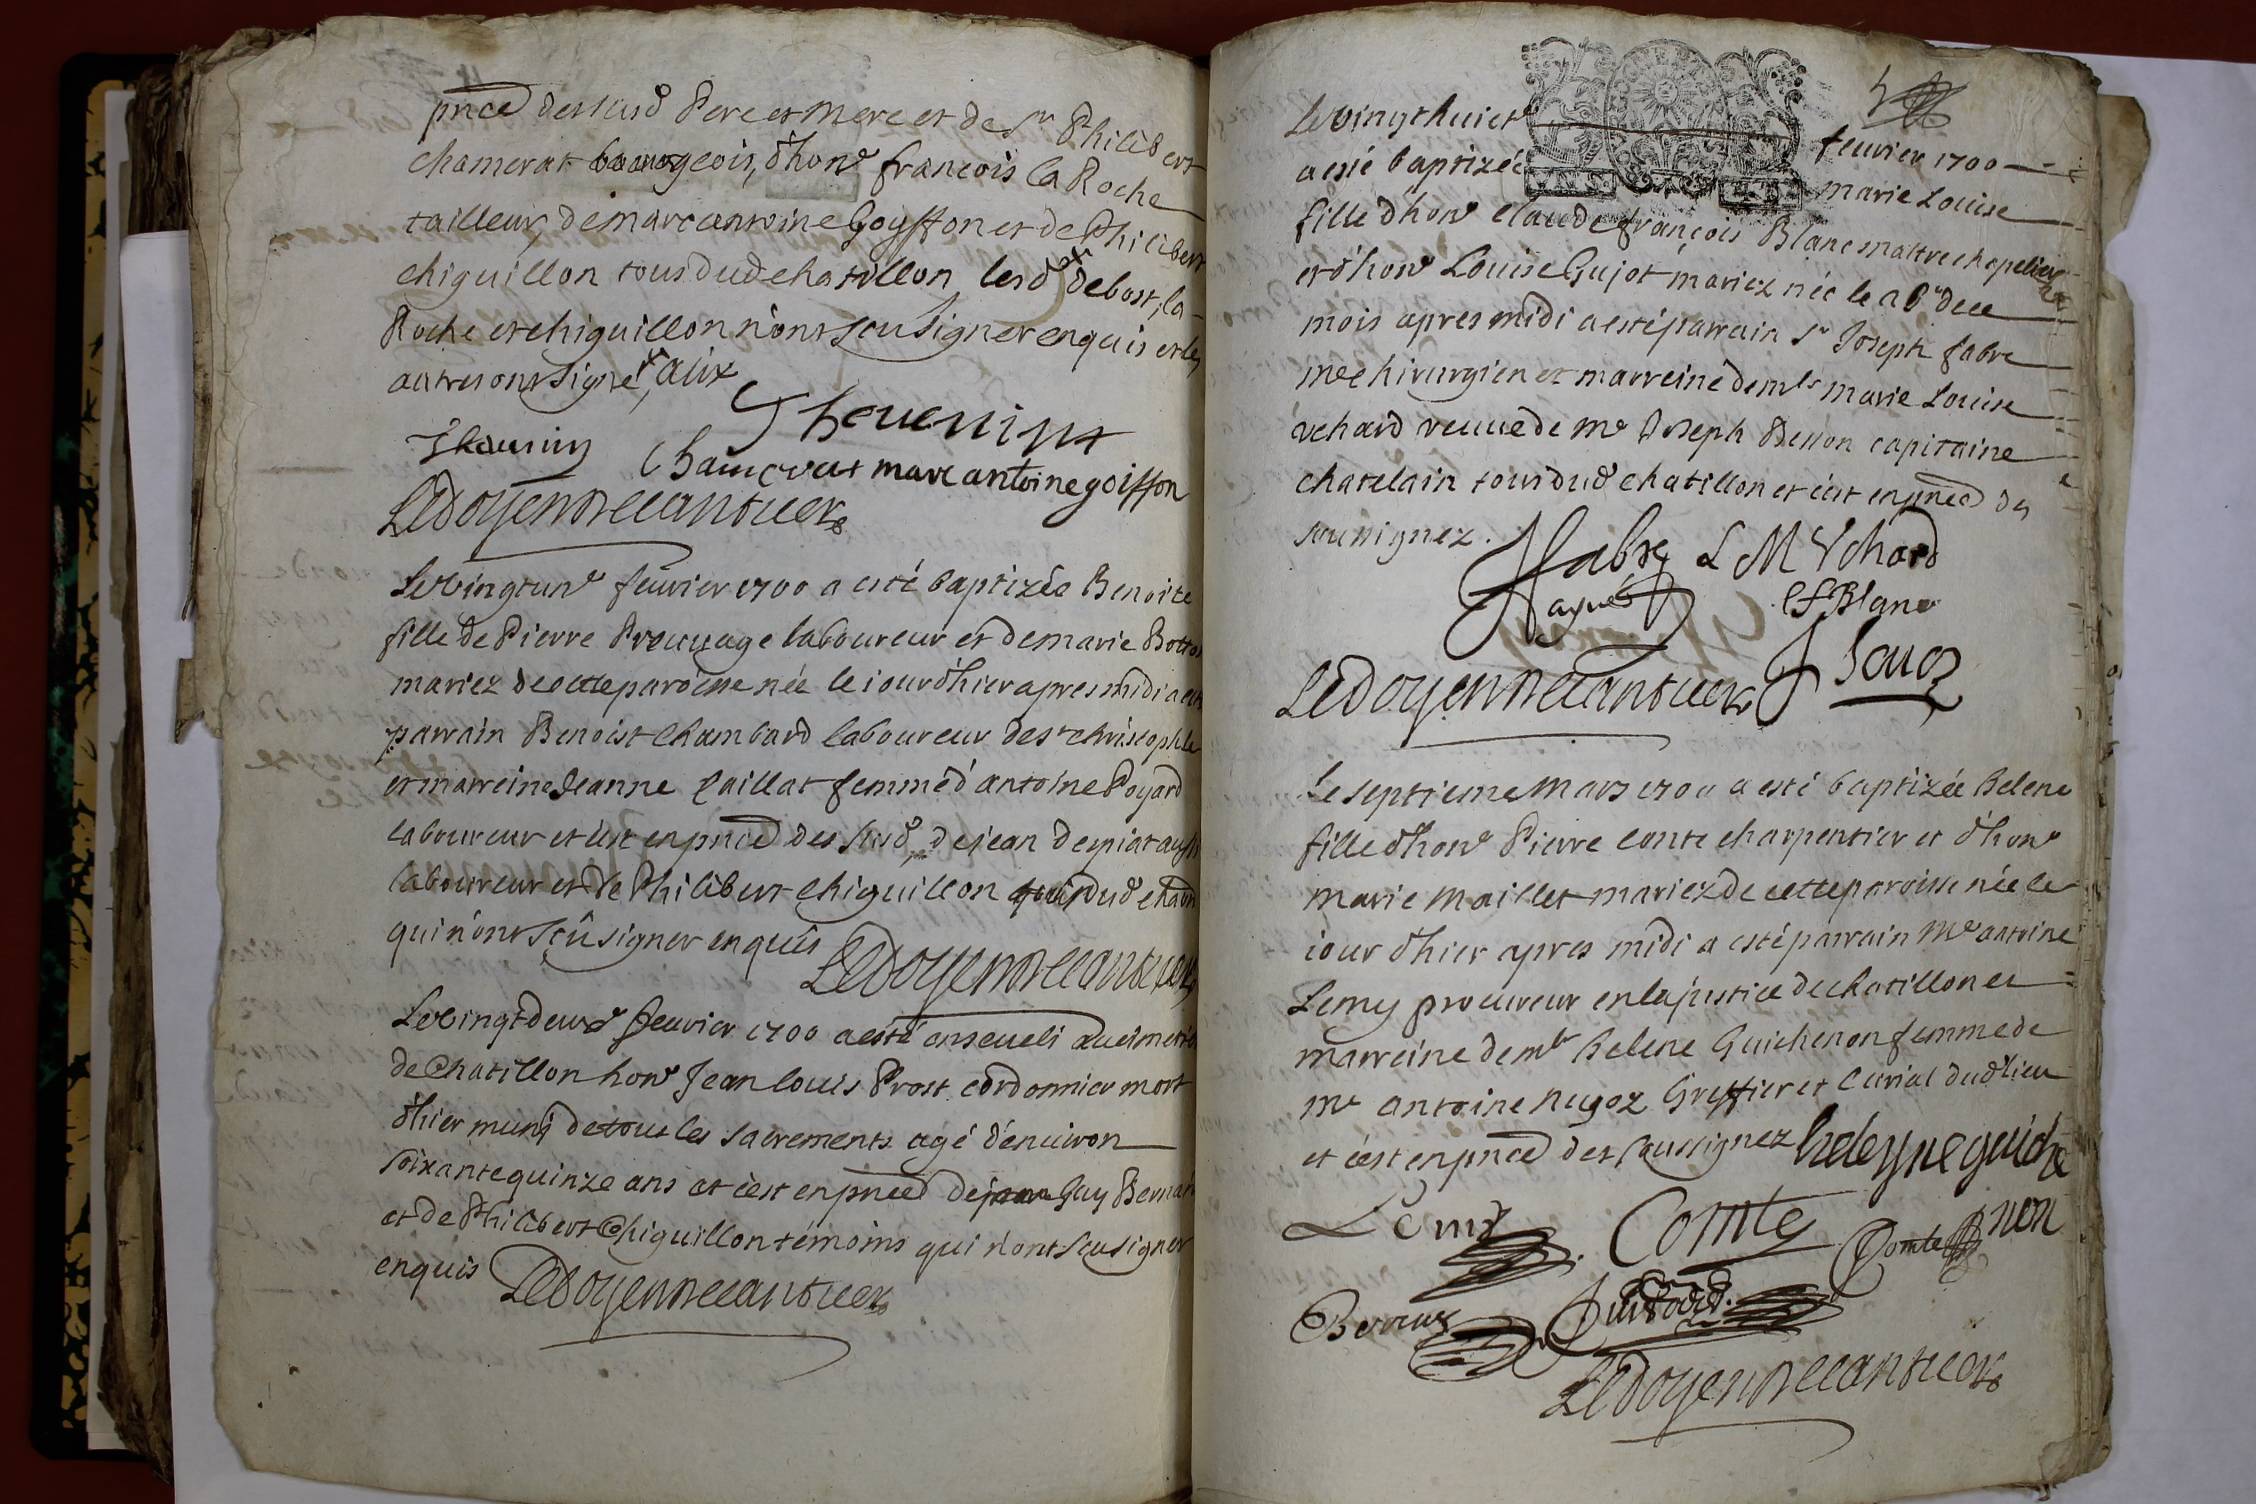 pnce des susd Pere et Mere et de Sr Philibert
chamerat bourgeois, d'hone francois la Roche
tailleur, de marc antoine Goyffon et de Philibert
chiguillon tous dud chatillon lesd debost, la
Roche et chiguillon n'ont scu signer enquis et les
autres ont signe, aux
Thevenin
Thevenin Chamerat marc antoine goiffon
Le doyen
Le vingt une feuvrier 1700 a esté baptizée Benoite
fille de Pierre laboureur et de marie
mariez de cette paroisse née le iour d'hier apres midi a esté
parrain Benoist Chambard laboureur de st christophle
et marreine Jeanne Caillat femme d'antoine Poyard
laboureur et c'est en pnce des susd, de jean depiat aussi
laboureur et de Philibert Chiguillon dud chaon
qui n'ont sçû signer enquis
Le doyen
Le vingt deuxe feuvrier 1700 a esté enseveli au cimetiere
de Chatillon hone Jean louis Prost cordonnier mort
d'hier muni de tout les sacrements agé d'environ
soixante quinze ans et c'est en pnce de Guy Bernard
et de Philibert Chiguillon témoins qui n'ont scu signer
enquis Le doyen
Le vingt huicte feuvrier 1700
a esté baptizée marie Louise
fille d'hone claude françois Blanc maitre chapelier
et d'hone Louise Gujot mariez née le de ce
mois apres midi a esté parrain Sr Joseph fabre
me chirurgien et marreine demlle marie Louise
vchard veuve de Me Joseph capitaine
chatelain tous dud chatillon et c'est en pnce des
soussignez.
fabre L M Vchard
Cf Blanc
Le doyen
Le septieme Mars 1700 a esté baptizée helene
fille d'hone Pierre conte charpentier et d'hone
marie maillet mariez de cette paroisse née le
iour d'hier apres midi a esté parrain Me antoine
Lemy procureur en la justice de chatillon et
marreine demlle helene Guichenon femme de
me antoine nugoz Greffier et curial dud lieu
et c'est en pnce des soussignez heleyne guiche
Lemy Comte Comte non
Le doyen